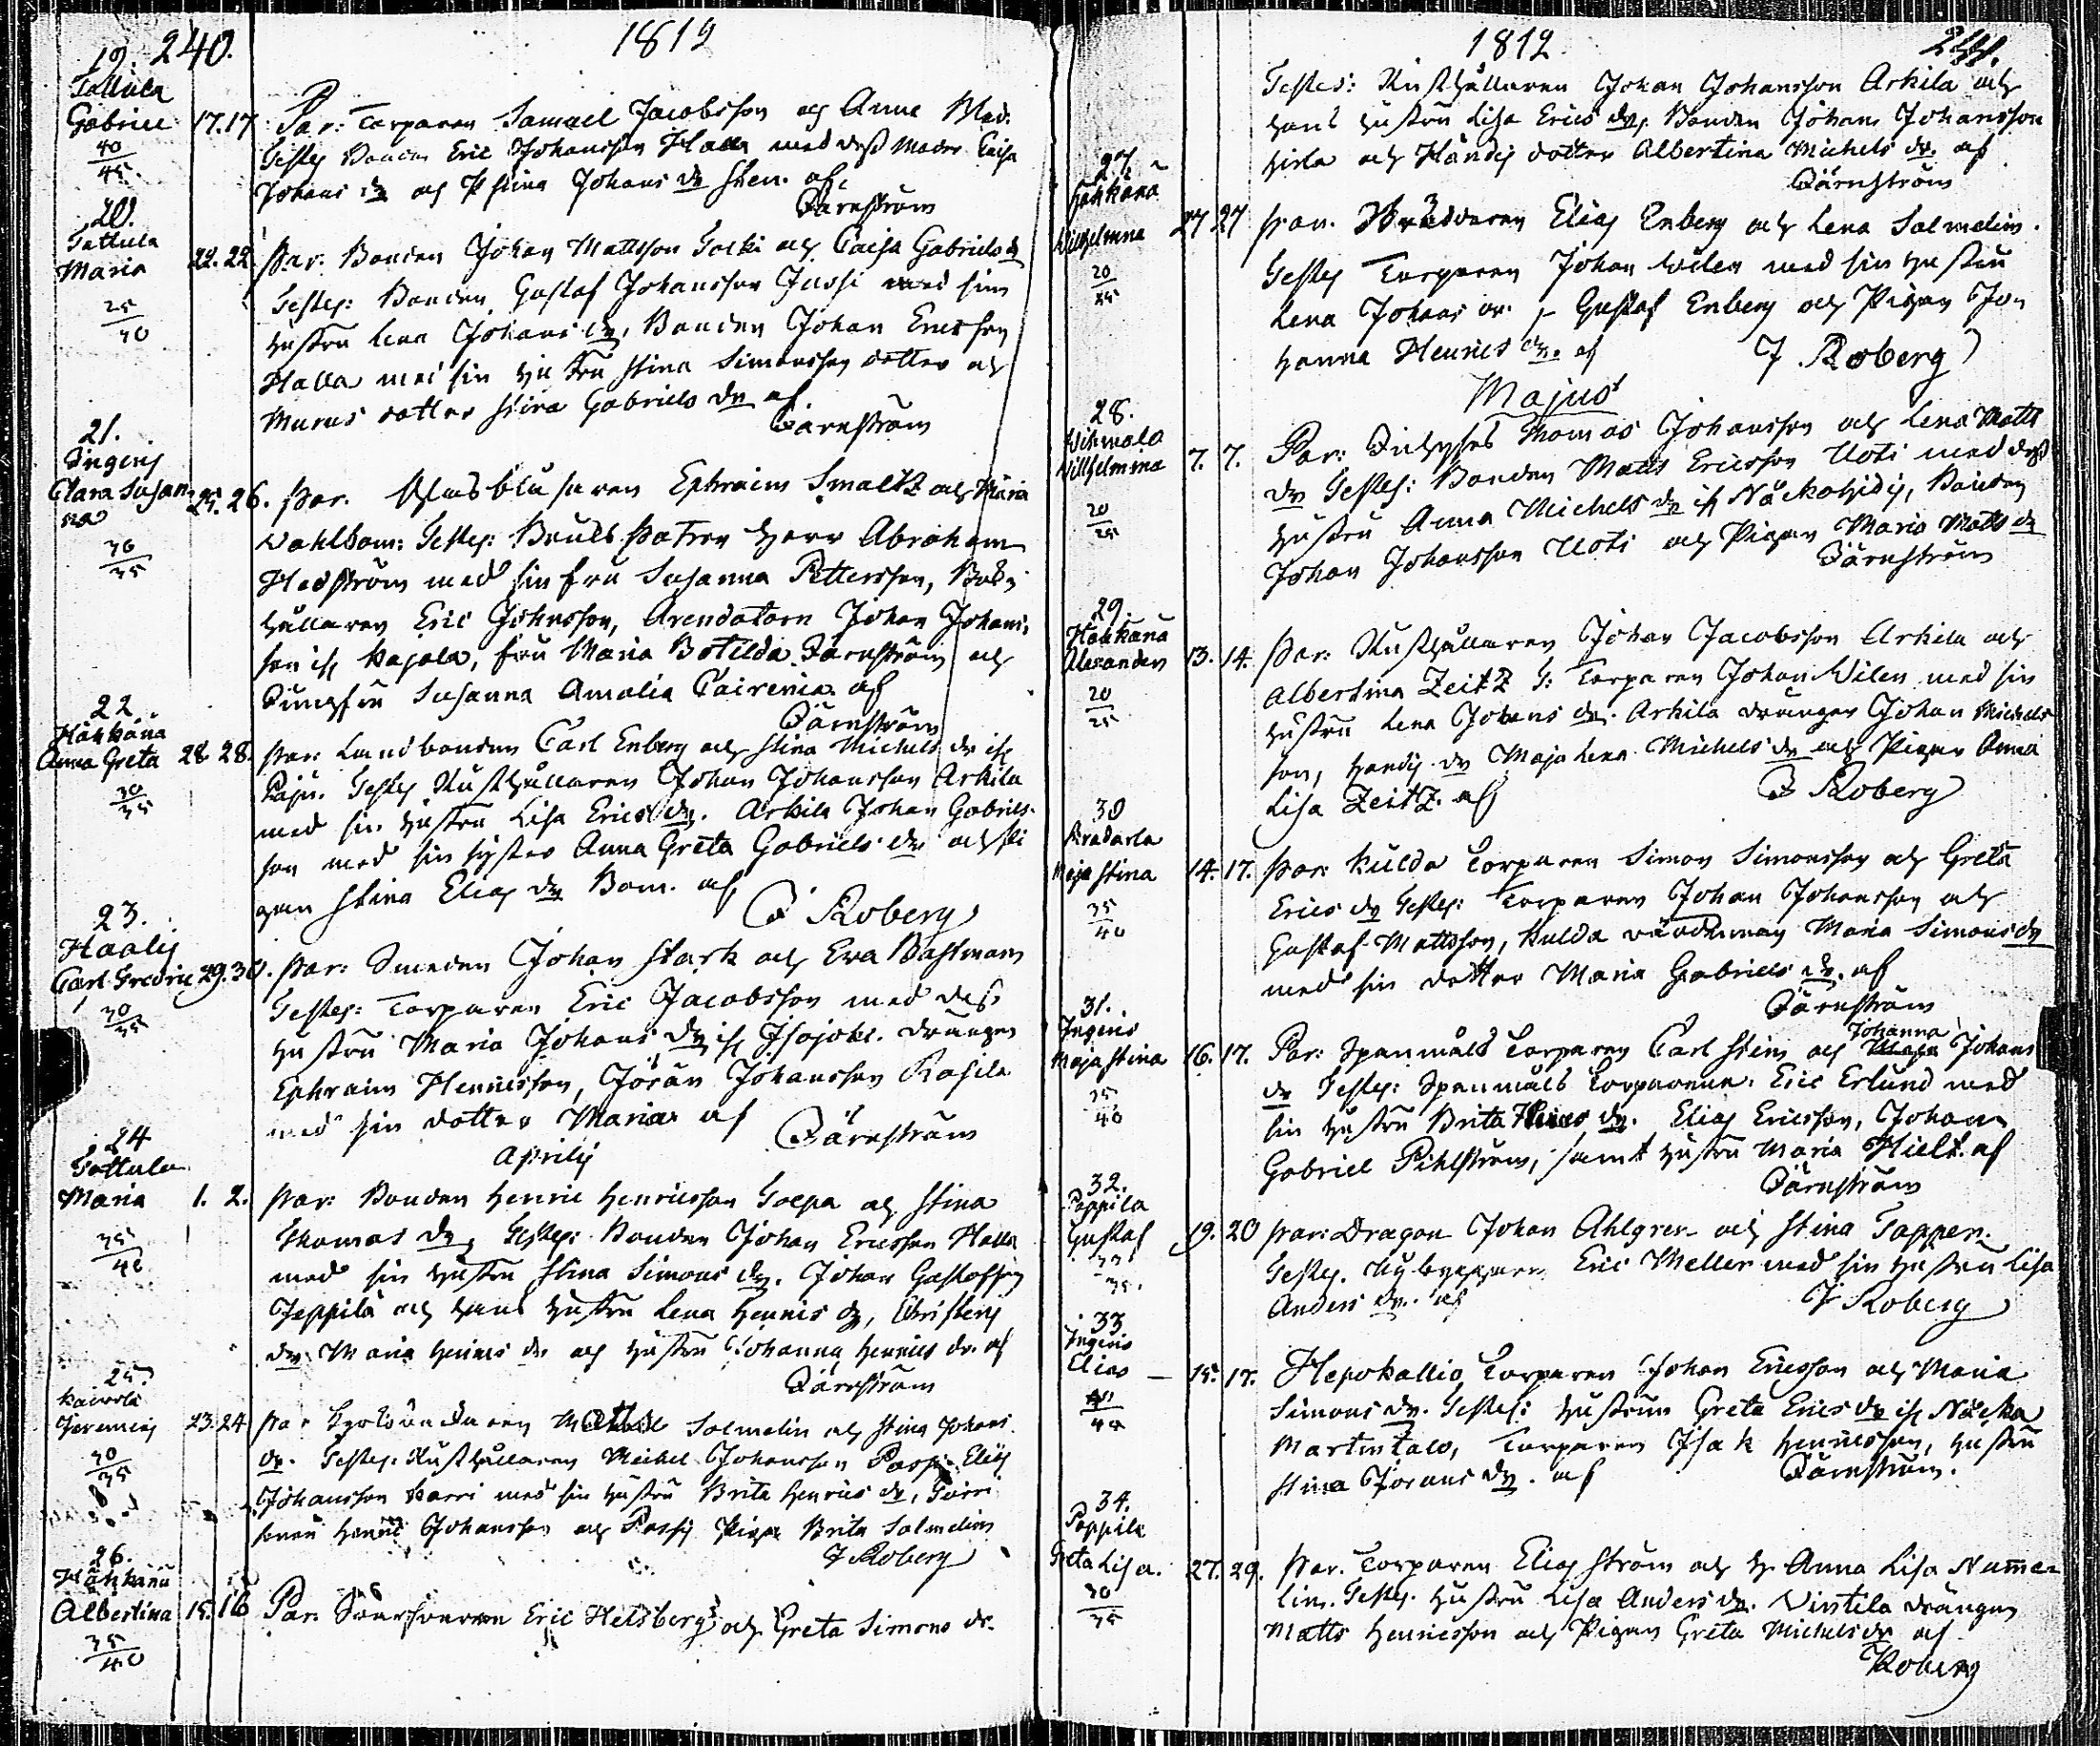 240.
1812
19.
Tattula
Gabriel 17. 17
40
45.
Par: Torparen Samuel Jacobsson och Anna Mad.
Testes Bonden Eric Johansson Halla med dess Moder Caisa
Johans dr och Stina Johans dr af
Färnström
20.
Tattula
Maria 22. 22
25
40
Par: Bonden Johan Mattsson och Caisa Gabriels dr
Testes: Bonden Gustaf Johansson Jussi med sin
hustru Lena Johans dr, Bonden Johan Ericsson
Halla med sin hustru Stina Simonsson dotter och
dotter Stina Gabriels dr af
Färnström
21.
Ingeris
Clara Susan
na 25. 26.
30
35
Par. Glasblåsaren Ephraim Smaltz och Maria
Wahlbom: Testes: Bruks Patron Herr Abraham
Hedström med sin fru Susanna Pettersson, Bok-
hållaren Eric Johnsson, Arendatorn Johan Johans-
son if Kajala, fru Maria Botilda Färnström och
Jungfru Susanna Amalia Cairenia af
Färnström
22.
Häkkänä
Anna Greta 28. 28.
30
35
Par: Landbonden Carl Enberg och Stina Michels dr if
Paju. Testes Rusthållaren Johan Johansson Arkila
med sin hustru Lisa Erics dr. Arkila Johan Gabriels-
son med sin syster Anna Greta Gabriels dr och Pi
gan Stina Elias dr Bom. af
F Roberg
23.
Haalis
Carl Fredric 29. 30.
30
35
Par: Smeden Johan Stark och Eva Bastman
Testes: Torparen Eric Jacobsson med dess
hustru Maria Johans dr if Isojoki. drängen
Ephraim Henricsson, Jöran Johansson Rasila
med sin dotter Maria af
Färnström
Aprilis
24
Tattula
Maria 1. 2.
35
40
Par: Bonden Henric Henricsson och Stina
Thomas dr, Testes: Bonden Johan Ericsson Halla
med sin hustru Stina Simons dr. Johan Gustafsson
Jeppilä och hans hustru Lena Henrics dr, Christers
dr. Maria Henrics dr och hustru Johanna Henrics dr. af
Färnström
25.
Kaivola
Jeremias 23. 24
30
35
Par Kyrkovaktaren Matts Salmelin och Stina Johans
dr. Testes: Rusthållaren Michel Johansson Elias
Johansson Karri med sin hustru Brita Henrics dr,
sonen Henric Johansson och Pigan Brita Salmelin
F Roberg
26.
Häkkänä
Albertina 15. 16
35
40
Par: Svarfvaren Eric Helsberg och Greta Simons dr.
1812.
241.
Testes: Rusthållaren Johan Johansson Arkila och
hans hustru Lisa Erics dr, Bonden Johan Johansson
Hirla och Händis dotter Albertina Michels dr. af
Färnström
27.
Häkkänä
Wilhelmina 27 27
20
25
Par. Elias Enberg och Lena Salmelin.
Testes Torparen Johan Wilen med sin hustru
Lena Johans dr. Gustaf Enberg och Pigan Jo-
hanna Henrics dr. af
F Roberg
Majus
28.
Wihmalo
Willhelmina 7. 7.
20
25
Par: Inhyses Thomas Johansson och Lena Matts
dr Testes: Bonden Matts Ericsson Uoti med dess
hustru Anna Michels dr if Näckohidis, Bonden
Johan Johansson Uoti och Pigan Maria Matts dr
Färnström
29.
Häkkänä
Alexander 13. 14.
20
25
Par: Rusthållaren Johan Jacobsson Arkila och
Albertina Zeitz T: Torparen Johan Wilen med sin
hustru Lena Johans dr. Arkila drängen Johan Michels-
son, Handis dr Maja Lena Michels dr och Pigan Anna
Lisa Zeitz. af
F Roberg
30
Maja Stina 14. 17.
35
40
Par: Kulda Torparen Simon Simonsson och Greta
Erics dr Testes: Torparen Johan Johansson och
Gustaf Mattsson, Kulda värdinnan Maria Simons dr
med sin dotter Maria Gabriels dr. af
Färnström
31.
Ingeris
Maja Stina 16. 17.
35
40
Par: Spanmåls Torparen Carl Stein och Johanna Johans
dr Testes: Spanmåls Torparena. Eric Erlund med
sin hustru Brita dr. Elias Ericsson, Johan
Gabriel Pihlström, samt hustru Maria Hielt. af
Färnström
32.
Poppila
Gustaf 19. 20
35.
Par: Dragon Johan Ahlgren och Stina Tappen.
Testes. Nybyggaren Eric Meller med sin hustru Lisa
Anders dr. af
F Roberg
33
Ingeris
Elias — 15. 17.
40
Hepokallio Torparen Johan Ericsson och Maria
Simons dr. Testes: hustrun Greta Erics dr if Näcka
Martintalo, Torparen Isak Henricsson, hustru
Stina Jörans dr. af
Färnström.
34.
Poppila
Greta Lisa. 27. 29.
30
35
Par. Torparen Elias Ström och H Anna Lisa Nume-
lin. Testes. hustru Lisa Anders dr. Wirtila drängen
Matts Henricsson och Pigan Greta Michels dr af
Roberg